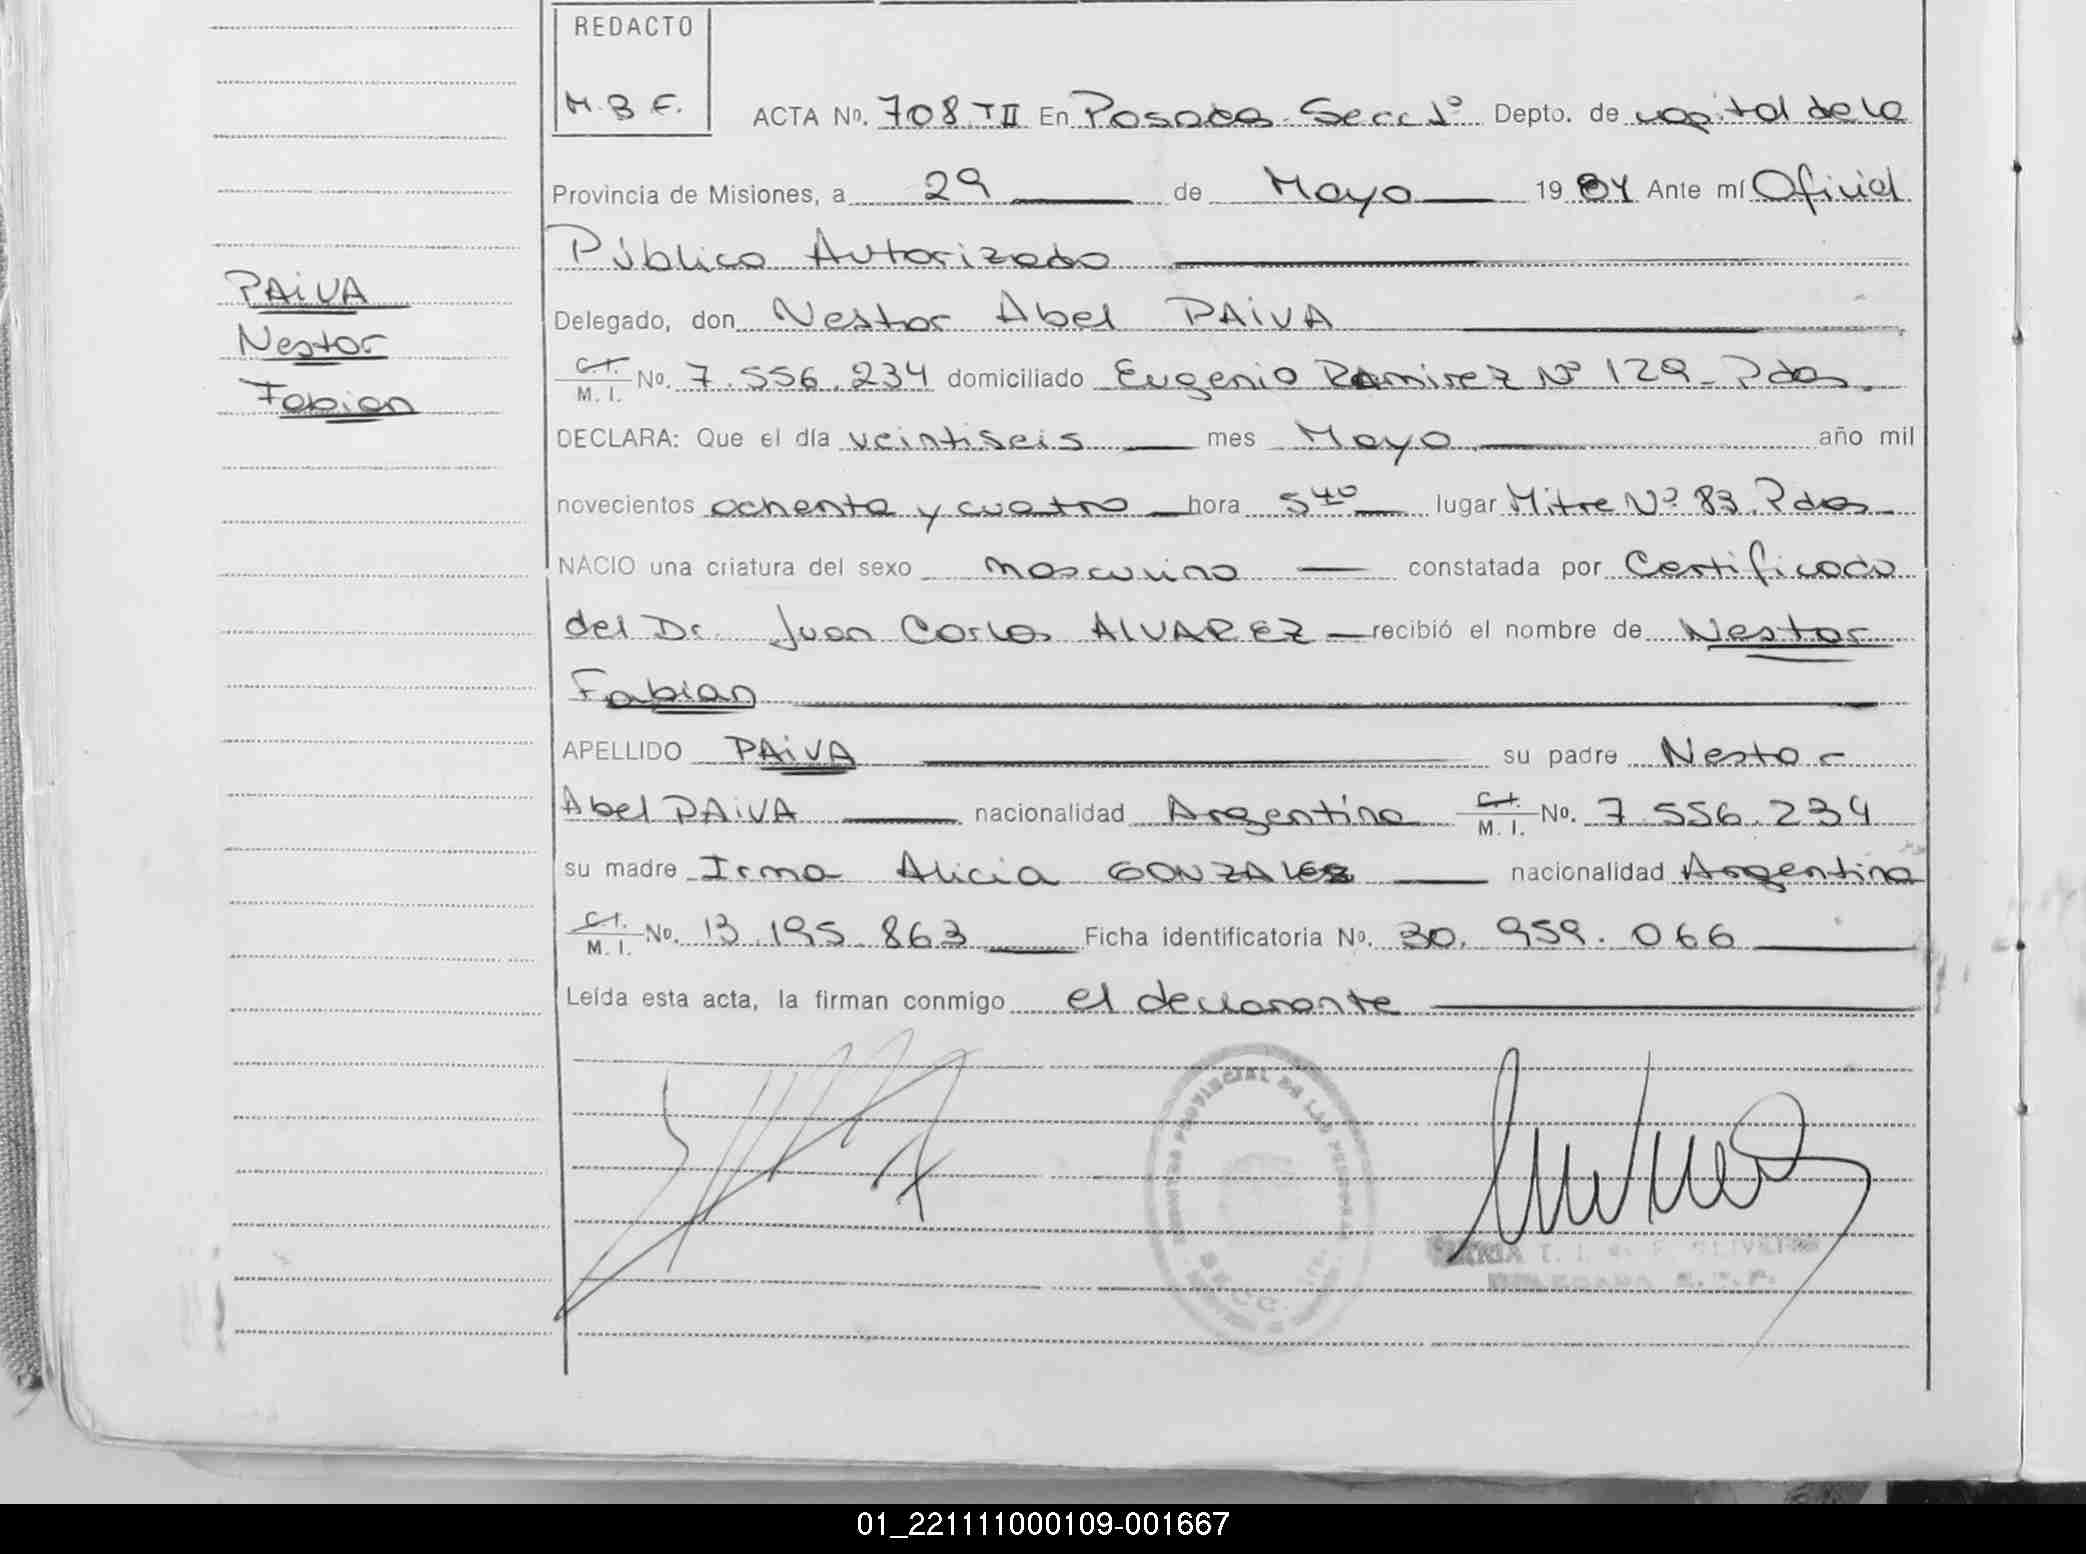 REDACTO
M.B.F.
ACTA No. 708 TII En Posadas Secc 1º Depto. de capital de la
Provincia de Misiones, a 29 de Mayo 1984 Ante mí Oficial
Público Autorizado
PAiVA
Nestor
Fabian
Delegado, don Nestor Abel PAiVA
C.I.
M. I. No. 7.556.234 domiciliado Eugenio Ramirez Nº 129 - Pdas.
DECLARA: Que el día veintiseis mes Mayo año mil
novecientos ochenta y cuatro hora 5 40 lugar Mitre Nº 83. Pdas
NACIO una criatura del sexo masculino constatada por Certificado
del Dr. Juan Carlos ALVAREZ recibió el nombre de Nestor
Fabian
APELLIDO PAiVA su padre Nestor
Abel PAiVA nacionalidad Argentina C.I. M. I. No. 7.556.234
su madre Irma Alicia GONZALEZ nacionalidad Argentina
C.I.
M. I. No. 13.195.863 Ficha identificatoria No. 30.959.066
Leída esta acta, la firman conmigo el declarante
PROVINCIAL DE LAS PERSONAS
SECC.
DELEGADA R.P.P.
01_221111000109-001667